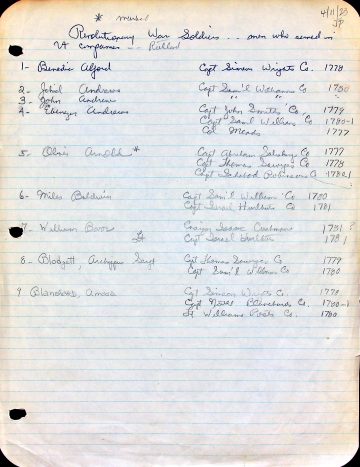 4/11/23
JP
* marked
Revolutionary War Soldiers... men who served in
Vt companies --- Richard
1- Benedic Alford Capt Simeon Wrights Co. 1778
2- Andrews Capt Sam'l Williams Co 1780
3- John Andrews " " "
4- Ebenezer Andrews Capt John Smith Co. 1779
Capt Saml William Co 1780-1
Col Meads 1777
5- Oliver Arnold * Capt Abraham Salisbury Co. 1777
Capt Thomas Sawyer's Co 1778
Capt Robinson Co 1782
6- Miles Baldwin Capt Sam'l William Co 1780
Capt Israel Hurlbut Co 1781
7- William Isaac Cushman 1781 ?
Lt Capt Israel Hurlbut 1781
8- Blodgett, Sergt Capt Thomas Sawyer Co 1779
Capt Sam'l Williams Co 1780
9 Blanchard, Amos Cpt Simeon Wrights Co. 1778
Capt Blanchards Co. 1780-1
Lt Williams Potts Co. 1780